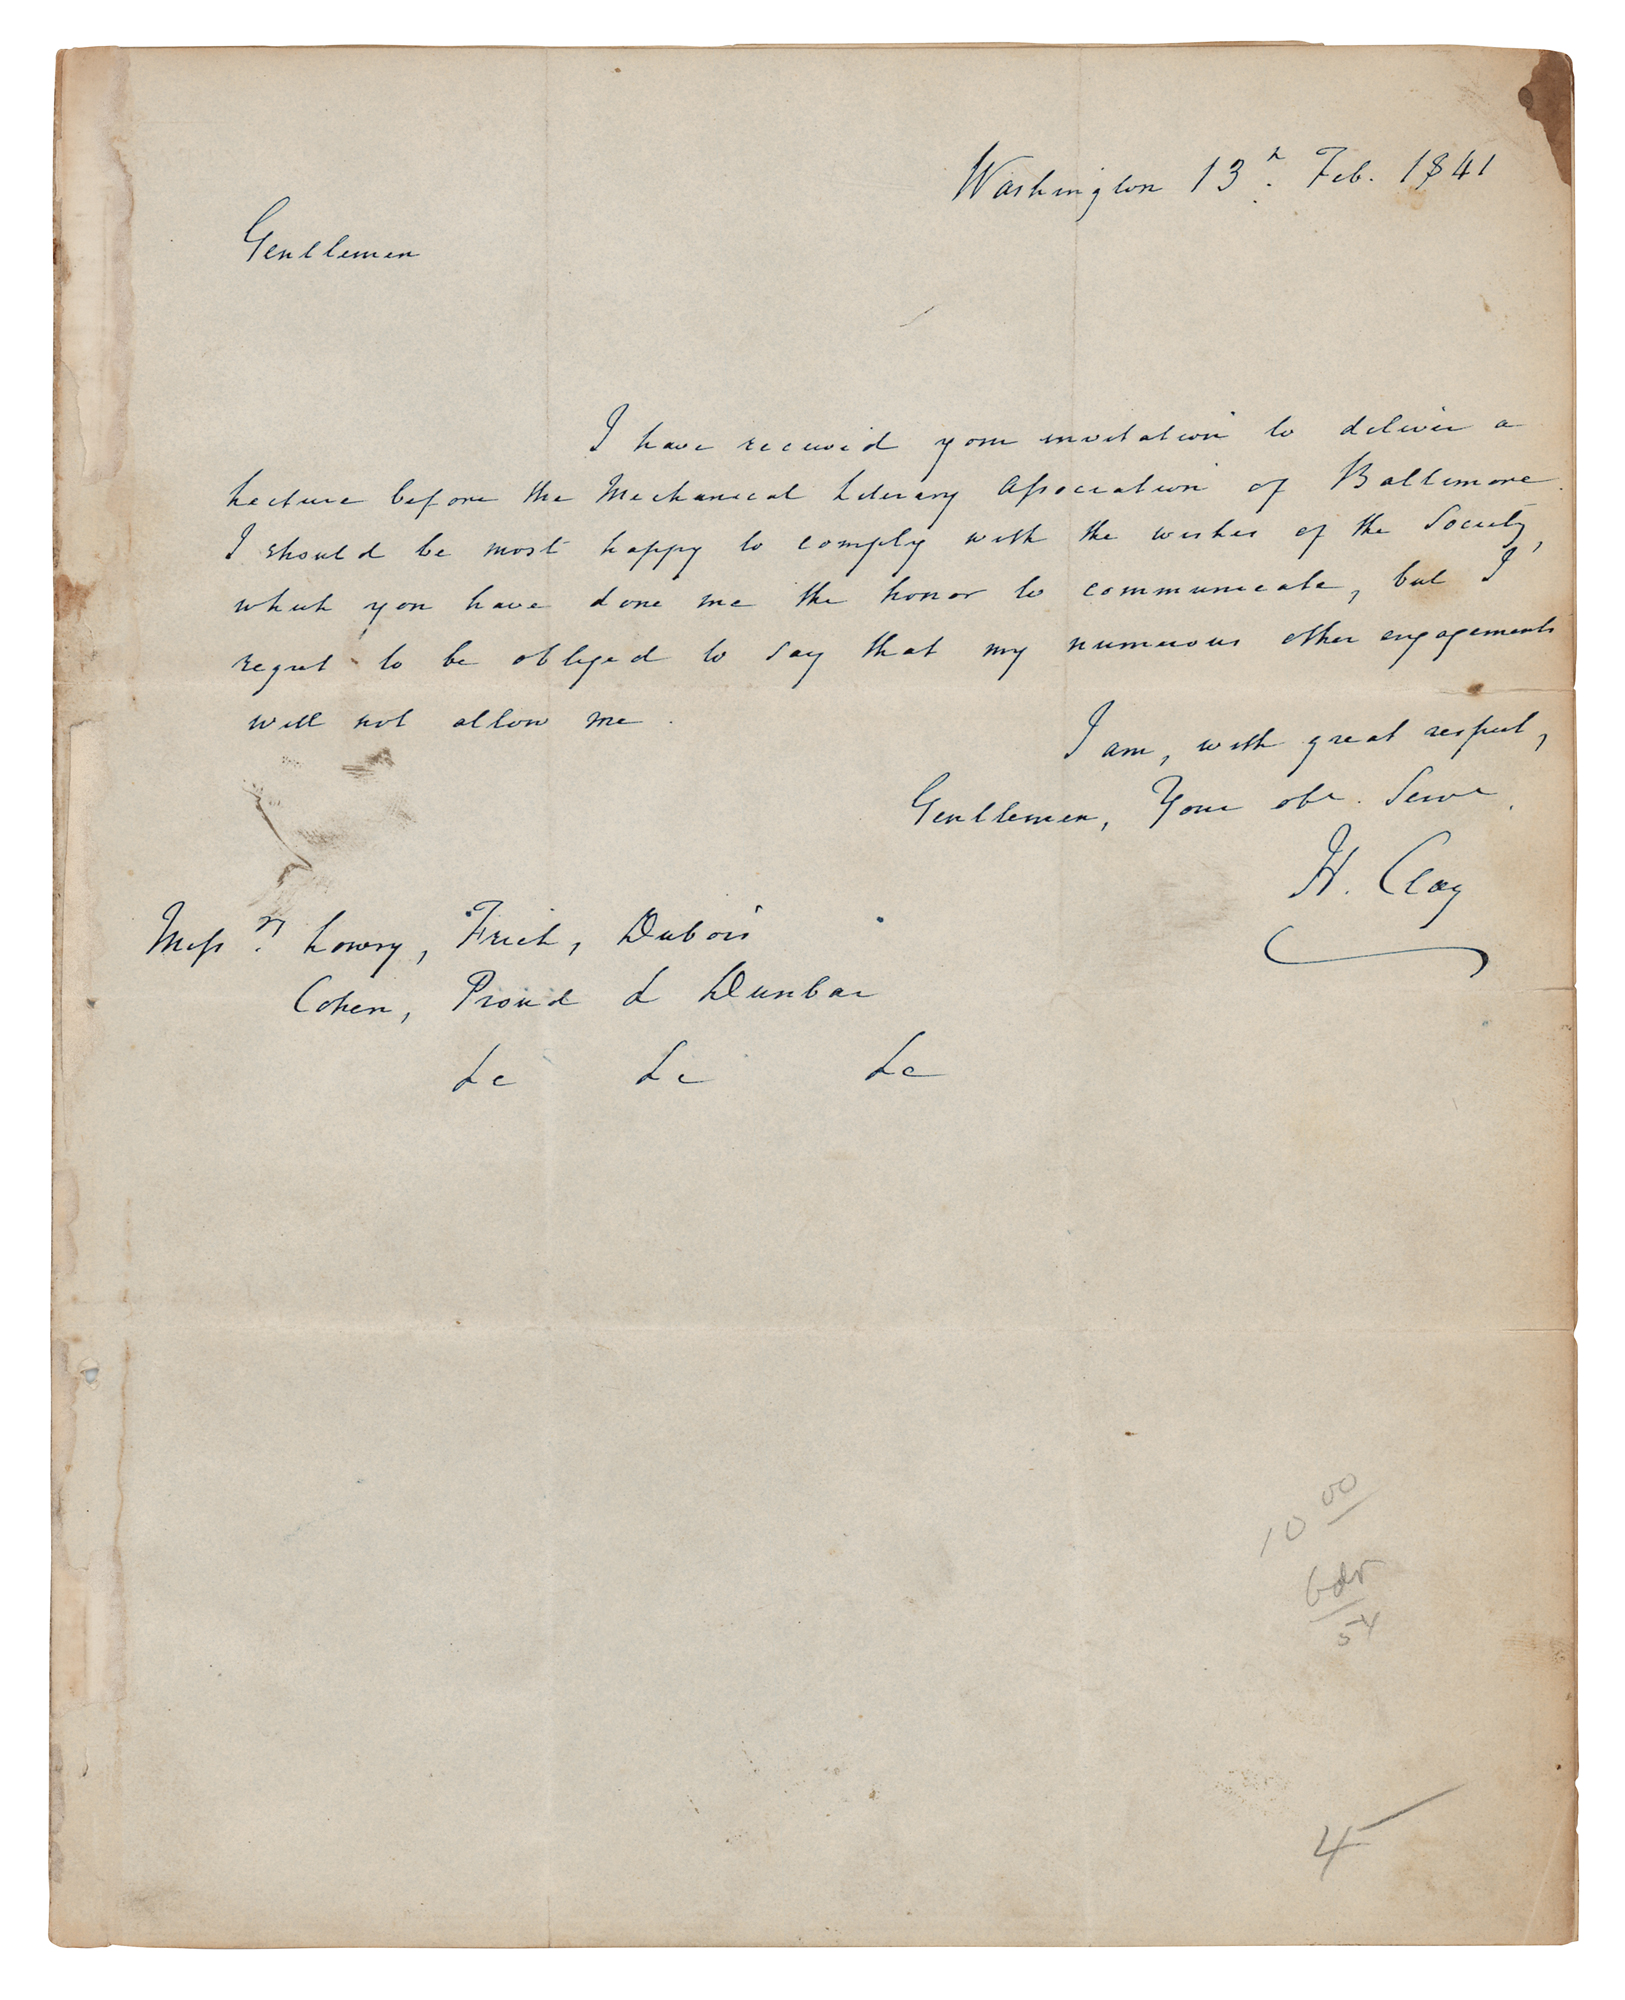 Washington 13h. Feb. 1841
Gentlemen
I have received your invitation to deliver a
Lecture before the Mechanical Literary Association of Baltimore.
I should be most happy to comply with the wishes of the Society,
which you have done me the honor to communicate, but I
regret to be obliged to say that my numerous other engagements
will not allow me.
I am, with great respect,
Gentlemen, Your obt. Servt.
H. Clay
Messrs. Lowry, Frick, Dubois
Cohen, Proud & Dunbar
&c &c &c
10 00
54
4